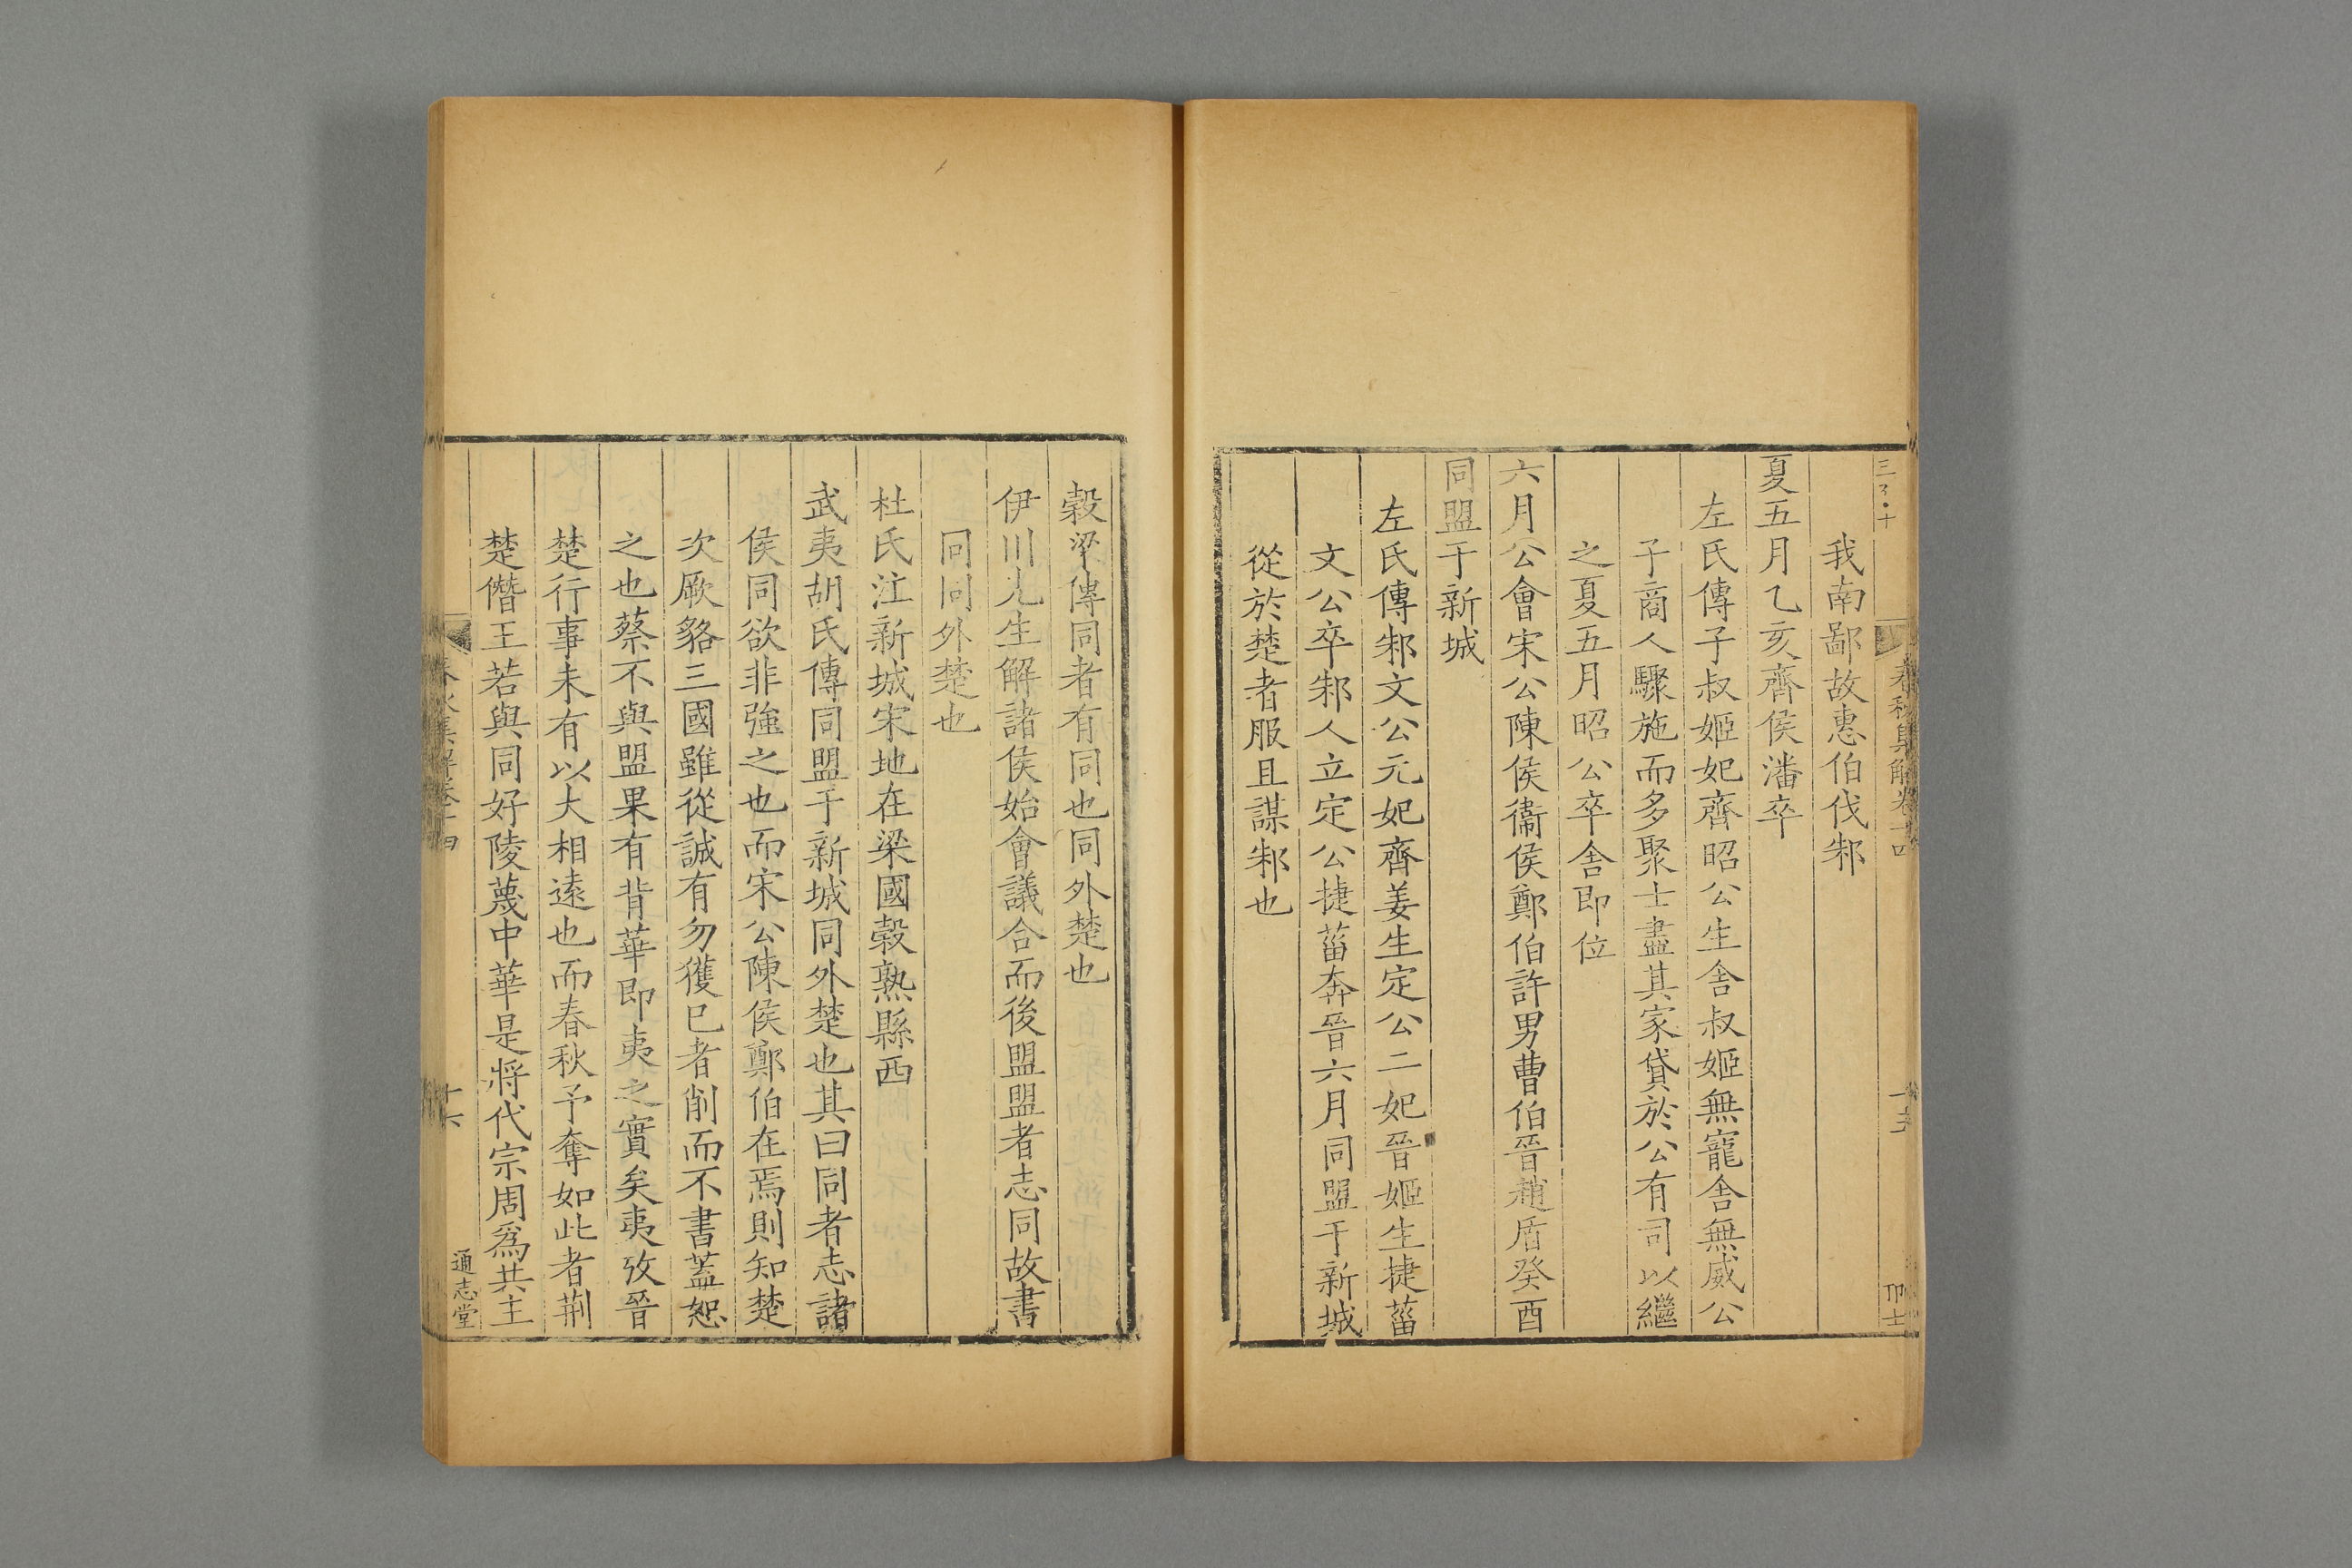 春秋集解卷十四
我南鄙故惠伯伐邾
夏五月乙亥齊侯潘卒
左氏傳子叔姬妃齊昭公生舍叔姬無寵舍無威公
子商人驟施而多聚士盡其家貸於公有司以繼
之夏五月昭公卒舍即位
六月公會宋公陳侯衞侯鄭伯許男曹伯晉趙盾癸酉
同盟于新城
左氏傳邾文公元妃齊姜生定公二妃晉姬生捷菑
文公卒邾人立定公捷菑奔晉六月同盟于新城
從於楚者服且謀邾也
穀梁傳同者有同也同外楚也
伊川先生解諸侯始會議合而後盟盟者志同故書
同同外楚也
杜氏注新城宋地在梁國穀熟縣西
武夷胡氏傳同盟于新城同外楚也其曰同者志諸
侯同欲非強之也而宋公陳侯鄭伯在焉則知楚
次厥貉三國雖從誠有勿獲已者削而不書蓋恕
之也蔡不與盟果有背華即夷之實矣夷攷晉
楚行事未有以大相遠也而春秋予奪如此者荆
楚僭王若與同好陵蔑中華是將代宗周爲共主
春秋集解卷十四
十六
通志堂